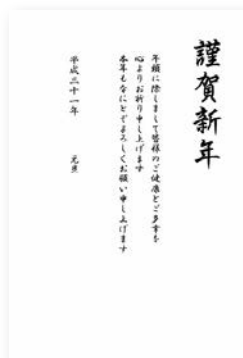 謹賀新年
年頭に際しまして皆様のご健康とご多幸を
心よりお祈り申し上げます
本年もなにとぞよろしくお願い申し上げます
平成二十一年　元旦